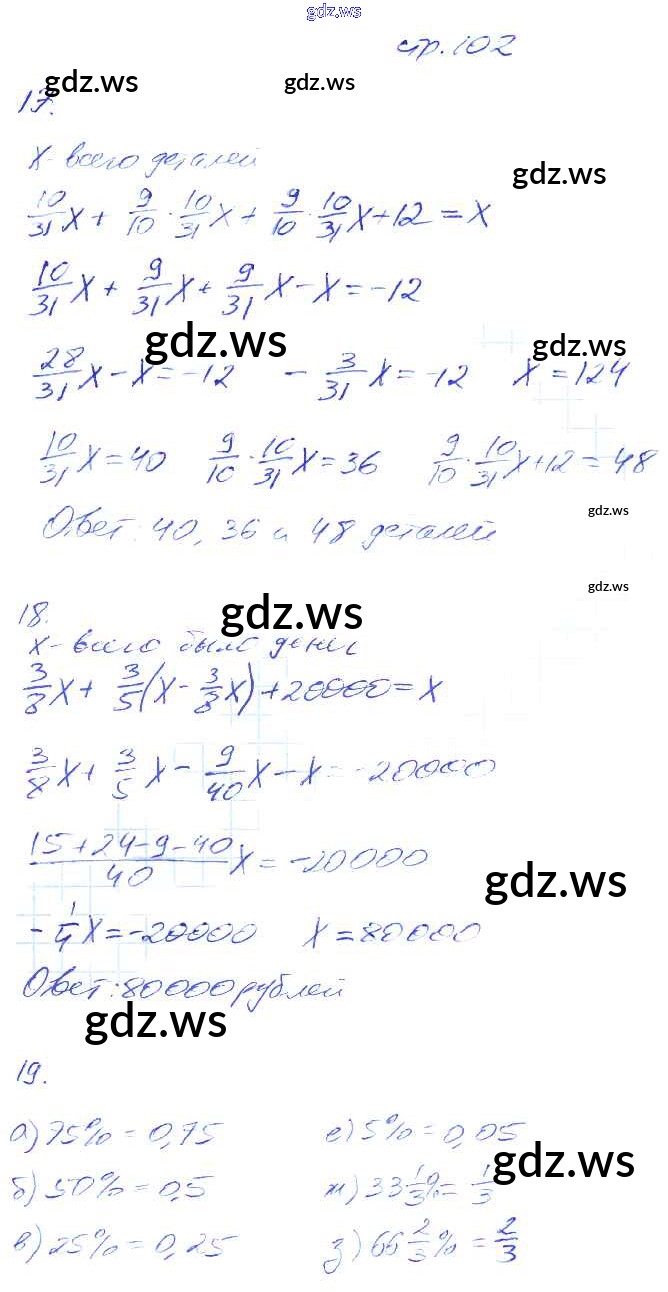 gdz.ws
стр. 102
gdz.ws
gdz.ws
17.
х - всего деталей
gdz.ws
10/31 х + 9/10 · 10/31 х + 9/10 · 10/31 х + 12 = х
10/31 х + 9/31 х + 9/31 х - х = -12
gdz.ws
gdz.ws
28/31 х - х = -12   - 3/31 х = -12   х = 124
10/31 х = 40   9/10 · 10/31 х = 36   9/10 · 10/31 х + 12 = 48
gdz.ws
Ответ: 40, 36 и 48 деталей
gdz.ws
18.
gdz.ws
х - всего было денег
3/8 х + 3/5 (х - 3/8 х) + 20000 = х
3/8 х + 3/5 х - 9/40 х - х = -20000
(15+24-9-40)/40 х = -20000
gdz.ws
- 1/4 х = -20000   х = 80000
Ответ: 80000 рублей
gdz.ws
19.
а) 75% = 0,75   е) 5% = 0,05
gdz.ws
б) 50% = 0,5   ж) 33 1/3 % = 1/3
в) 25% = 0,25   з) 66 2/3 % = 2/3